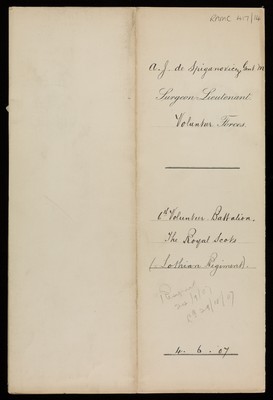 RAMC 417/
A. J. de Spiganovicz, Gent M
Surgeon-Lieutenant
Volunteer Forces.
6th Volunteer Battalion.
The Royal Scots
(Lothian Regiment).
4. 6. 07